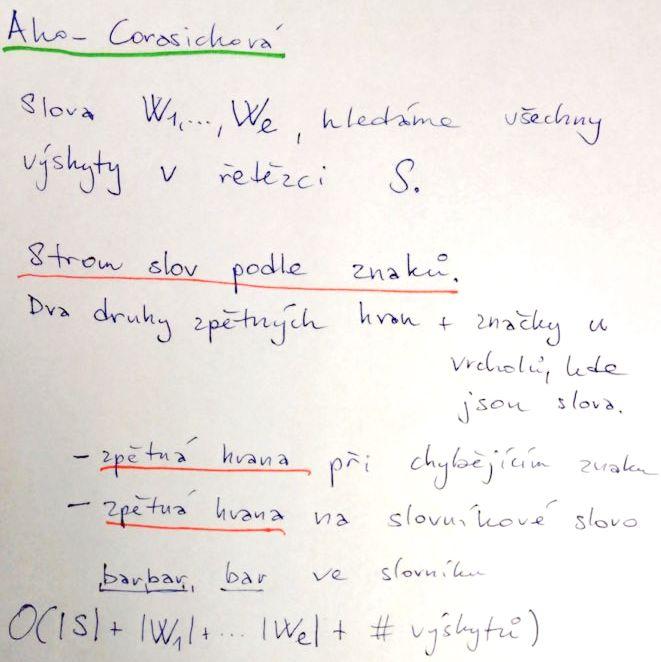 Aho-Corasicková
Slova W1,...,Wℓ, hledáme všechny
výskyty v řetězci S.
Strom slov podle znaků.
Dva druhy zpětných hran + značky u
vrcholů, kde
jsou slova.
- zpětná hrana při chybějícím znaku
- zpětná hrana na slovníkové slovo
barbar, bar ve slovníku
O(|S| + |W1| + ... |Wℓ| + # výskytů)